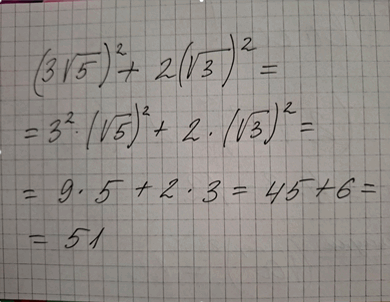 (3√5)² + 2(√3)² =
= 3² · (√5)² + 2 · (√3)² =
= 9 · 5 + 2 · 3 = 45 + 6 =
= 51